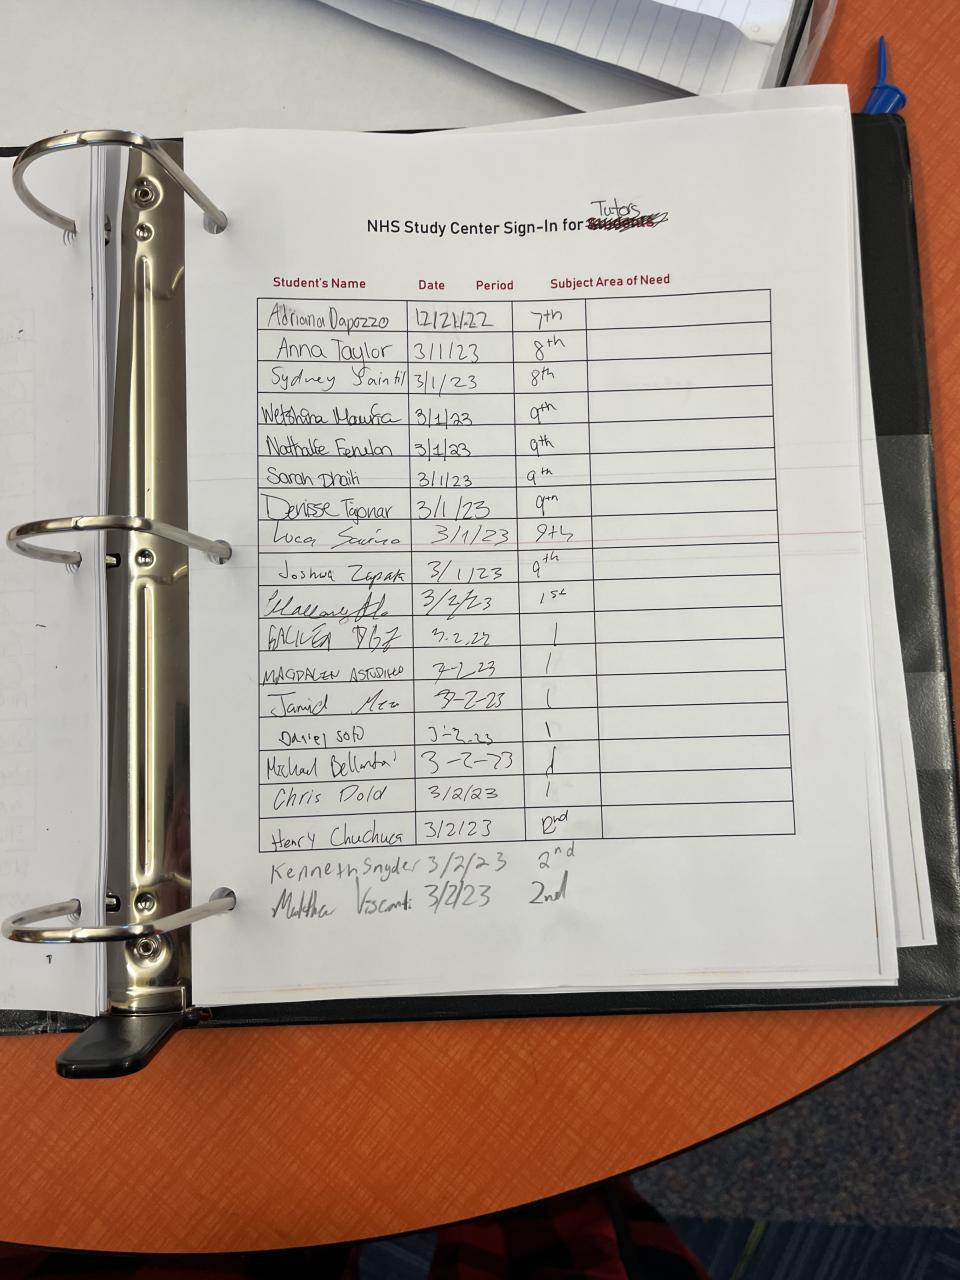 Tutors
NHS Study Center Sign-In for Students
Student's Name Date Period Subject Area of Need
Adriana Dapozzo 12/21/22 7th
Anna Taylor 3/1/23 8th
Sydney Saintil 3/1/23 8th
3/1/23 9th
Nathalie Fenelon 3/1/23 9th
Sarah Dhaiti 3/1/23 9th
Denisse 3/1/23 9th
Luca 3/1/23 9th
Joshua Zapata 3/1/23 9th
3/2/23 1st
1
MAGDALEN ASTUDILLO 3-2-23 1
3-2-23 1
Daniel Soto 3-2-23 1
Michael 3-2-23 1
Chris Dold 3/2/23 1
Henry Chuchuca 3/2/23 2nd
Kenneth Snyder 3/2/23 2nd
Visconti 3/2/23 2nd